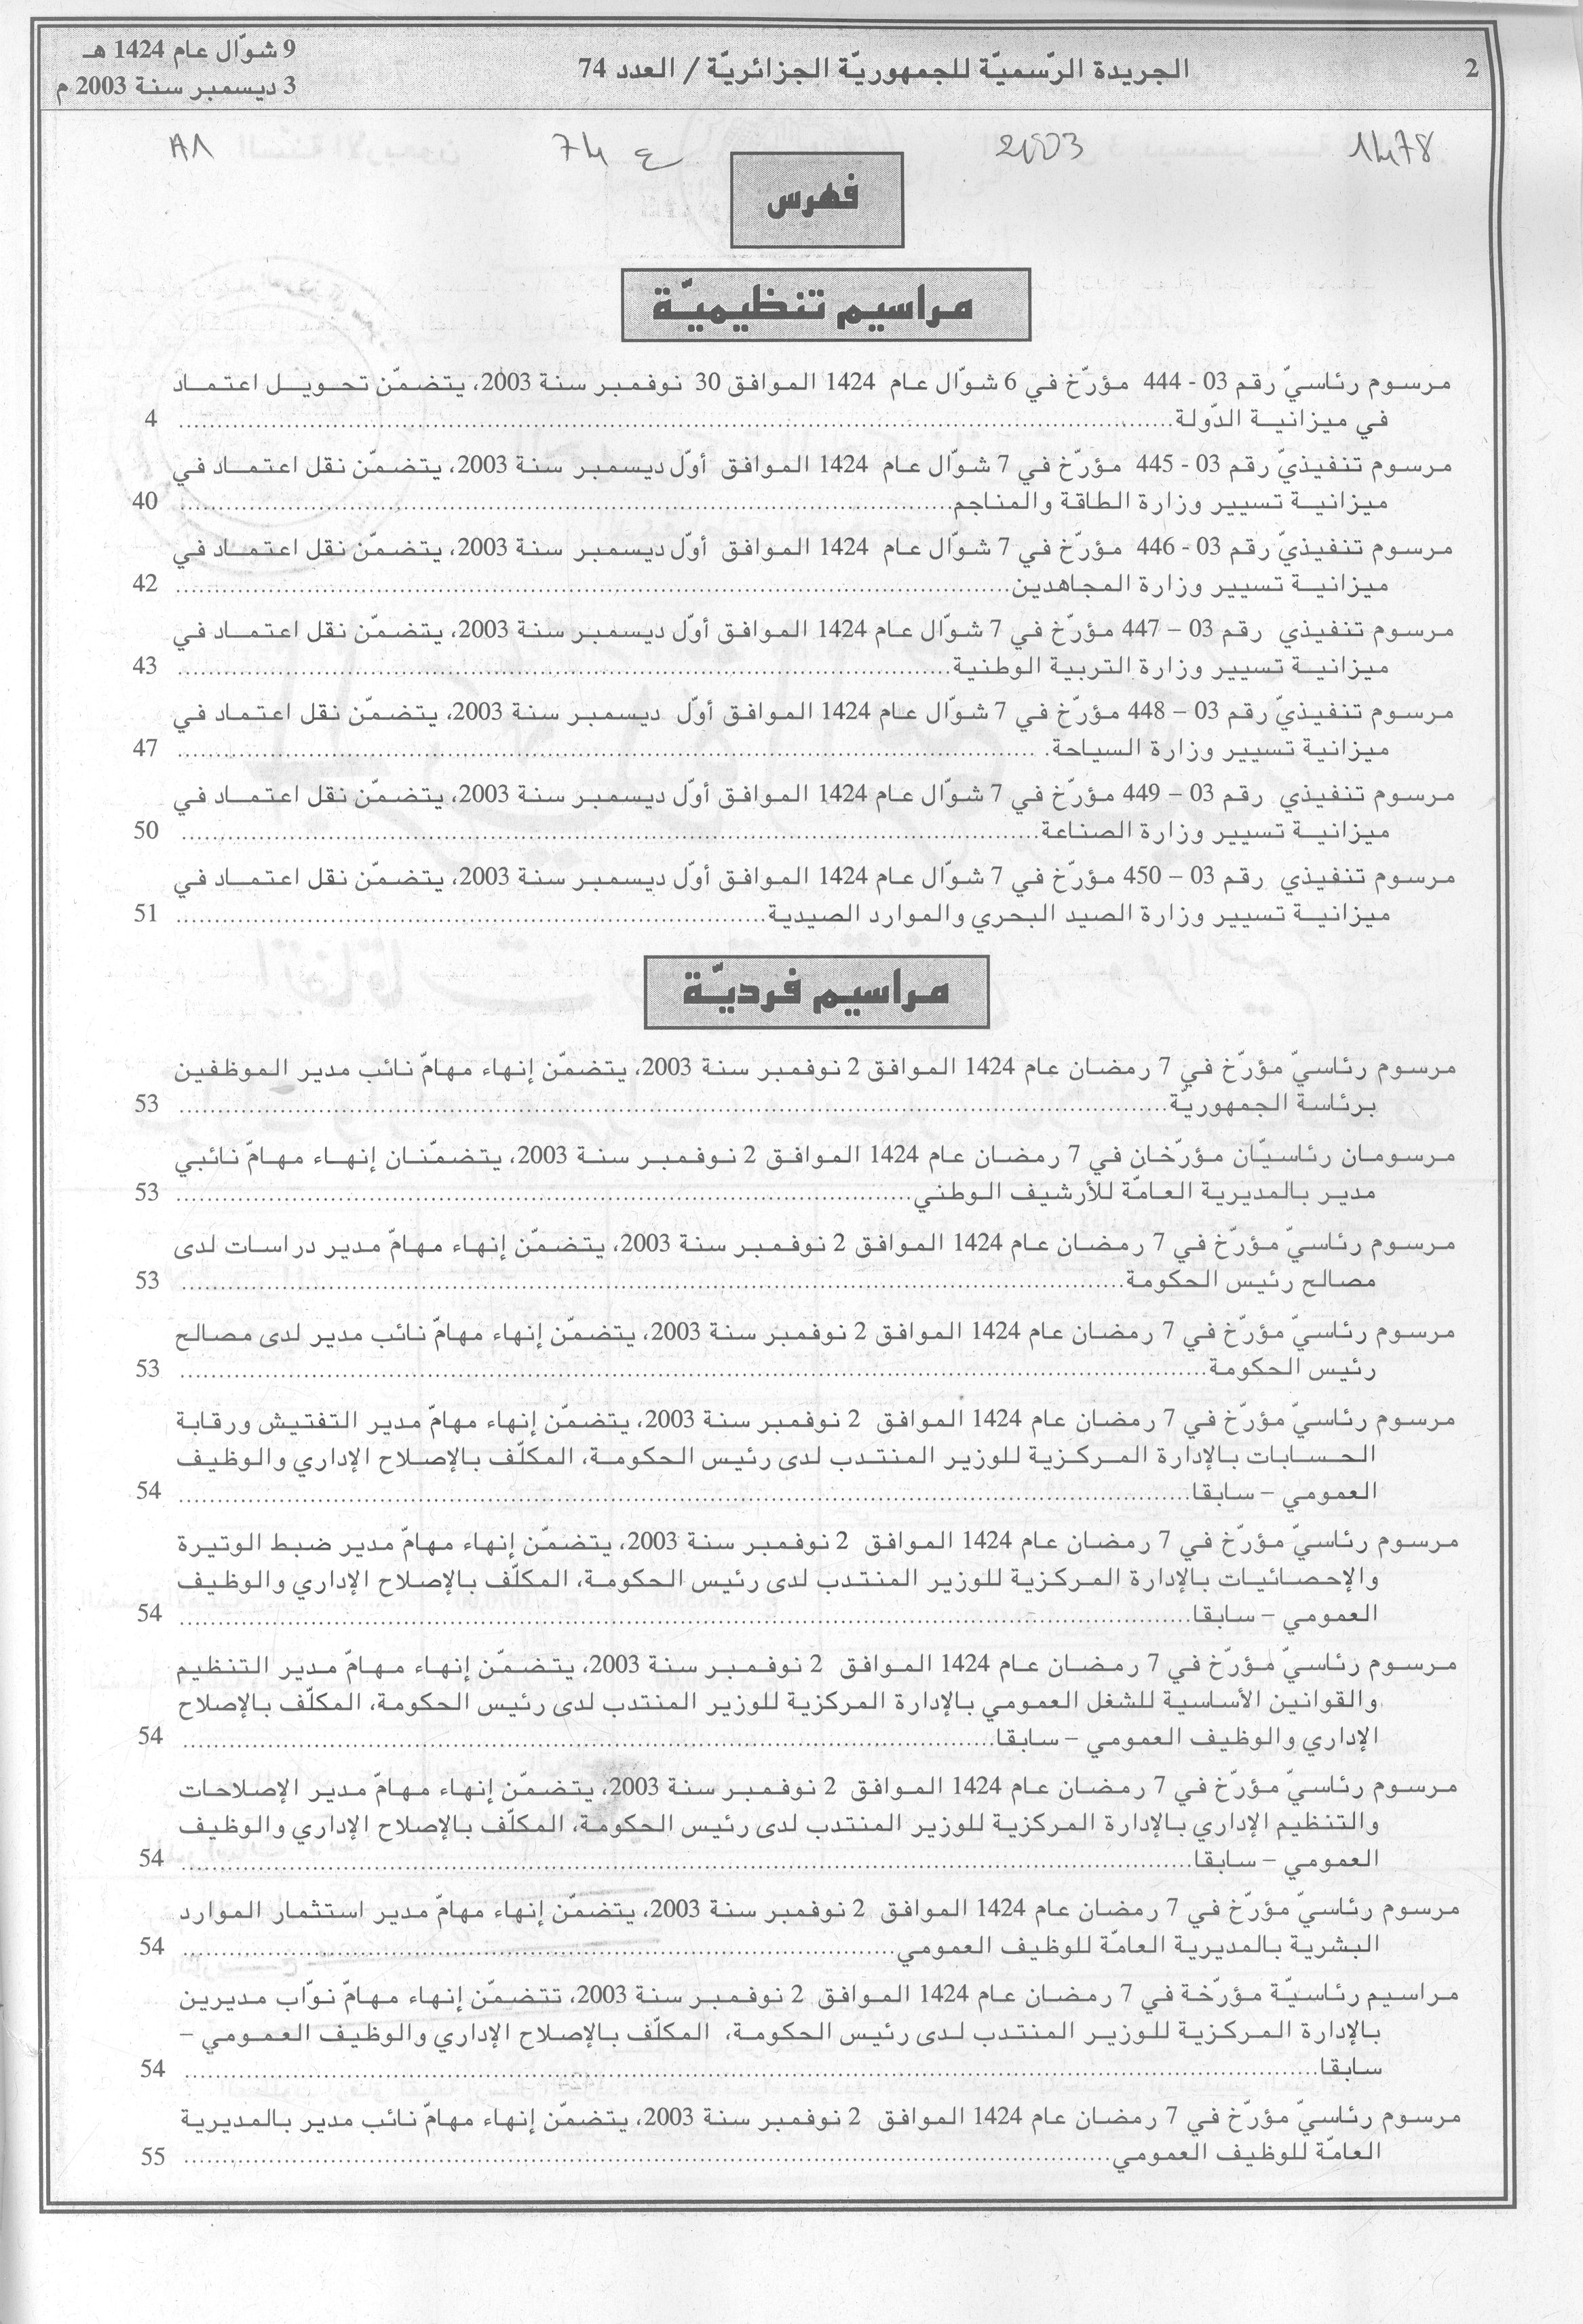 2
الجريدة الرّسميّة للجمهوريّة الجزائريّة / العدد 74
9 شوّال عام 1424 هـ
3 ديسمبر سنة 2003 م
1478 2003 74 ع A1
فهرس
مراسيم تنظيميّة
مرسوم رئاسيّ رقم 03 - 444 مؤرّخ في 6 شوّال عام 1424 الموافق 30 نوفمبر سنة 2003، يتضمّن تحويل اعتماد
في ميزانية الدّولة................ 4
مرسوم تنفيذيّ رقم 03 - 445 مؤرّخ في 7 شوّال عام 1424 الموافق أوّل ديسمبر سنة 2003، يتضمّن نقل اعتماد في
ميزانية تسيير وزارة الطاقة والمناجم................ 40
مرسوم تنفيذيّ رقم 03 - 446 مؤرّخ في 7 شوّال عام 1424 الموافق أوّل ديسمبر سنة 2003، يتضمّن نقل اعتماد في
ميزانية تسيير وزارة المجاهدين................ 42
مرسوم تنفيذي رقم 03 – 447 مؤرّخ في 7 شوّال عام 1424 الموافق أوّل ديسمبر سنة 2003، يتضمّن نقل اعتماد في
ميزانية تسيير وزارة التربية الوطنية................ 43
مرسوم تنفيذيّ رقم 03 – 448 مؤرّخ في 7 شوّال عام 1424 الموافق أوّل ديسمبر سنة 2003، يتضمّن نقل اعتماد في
ميزانية تسيير وزارة السياحة................ 47
مرسوم تنفيذي رقم 03 – 449 مؤرّخ في 7 شوّال عام 1424 الموافق أوّل ديسمبر سنة 2003، يتضمّن نقل اعتماد في
ميزانية تسيير وزارة الصناعة................ 50
مرسوم تنفيذي رقم 03 – 450 مؤرّخ في 7 شوّال عام 1424 الموافق أوّل ديسمبر سنة 2003، يتضمّن نقل اعتماد في
ميزانية تسيير وزارة الصيد البحري والموارد الصيدية................ 51
مراسيم فرديّة
مرسوم رئاسيّ مؤرّخ في 7 رمضان عام 1424 الموافق 2 نوفمبر سنة 2003، يتضمّن إنهاء مهامّ نائب مدير الموظفين
برئاسة الجمهوريّة................ 53
مرسومان رئاسيّان مؤرّخان في 7 رمضان عام 1424 الموافق 2 نوفمبر سنة 2003، يتضمّنان إنهاء مهامّ نائبي
مدير بالمديرية العامّة للأرشيف الوطني................ 53
مرسوم رئاسيّ مؤرّخ في 7 رمضان عام 1424 الموافق 2 نوفمبر سنة 2003، يتضمّن إنهاء مهامّ مدير دراسات لدى
مصالح رئيس الحكومة................ 53
مرسوم رئاسيّ مؤرّخ في 7 رمضان عام 1424 الموافق 2 نوفمبر سنة 2003، يتضمّن إنهاء مهامّ نائب مدير لدى مصالح
رئيس الحكومة................ 53
مرسوم رئاسيّ مؤرّخ في 7 رمضان عام 1424 الموافق 2 نوفمبر سنة 2003، يتضمّن إنهاء مهامّ مدير التفتيش ورقابة
الحسابات بالإدارة المركزية للوزير المنتدب لدى رئيس الحكومة، المكلّف بالإصلاح الإداري والوظيف
العمومي – سابقا................ 54
مرسوم رئاسيّ مؤرّخ في 7 رمضان عام 1424 الموافق 2 نوفمبر سنة 2003، يتضمّن إنهاء مهامّ مدير ضبط الوتيرة
والإحصائيات بالإدارة المركزية للوزير المنتدب لدى رئيس الحكومة، المكلّف بالإصلاح الإداري والوظيف
العمومي – سابقا................ 54
مرسوم رئاسيّ مؤرّخ في 7 رمضان عام 1424 الموافق 2 نوفمبر سنة 2003، يتضمّن إنهاء مهامّ مدير التنظيم
والقوانين الأساسية للشغل العمومي بالإدارة المركزية للوزير المنتدب لدى رئيس الحكومة، المكلّف بالإصلاح
الإداري والوظيف العمومي – سابقا................ 54
مرسوم رئاسيّ مؤرّخ في 7 رمضان عام 1424 الموافق 2 نوفمبر سنة 2003، يتضمّن إنهاء مهامّ مدير الإصلاحات
والتنظيم الإداري بالإدارة المركزية للوزير المنتدب لدى رئيس الحكومة، المكلّف بالإصلاح الإداري والوظيف
العمومي – سابقا................ 54
مرسوم رئاسيّ مؤرّخ في 7 رمضان عام 1424 الموافق 2 نوفمبر سنة 2003، يتضمّن إنهاء مهامّ مدير استثمار الموارد
البشرية بالمديرية العامّة للوظيف العمومي................ 54
مراسيم رئاسيّة مؤرّخة في 7 رمضان عام 1424 الموافق 2 نوفمبر سنة 2003، تتضمّن إنهاء مهامّ نوّاب مديرين
بالإدارة المركزية للوزير المنتدب لدى رئيس الحكومة، المكلّف بالإصلاح الإداري والوظيف العمومي –
سابقا................ 54
مرسوم رئاسيّ مؤرّخ في 7 رمضان عام 1424 الموافق 2 نوفمبر سنة 2003، يتضمّن إنهاء مهامّ نائب مدير بالمديرية
العامّة للوظيف العمومي................ 55